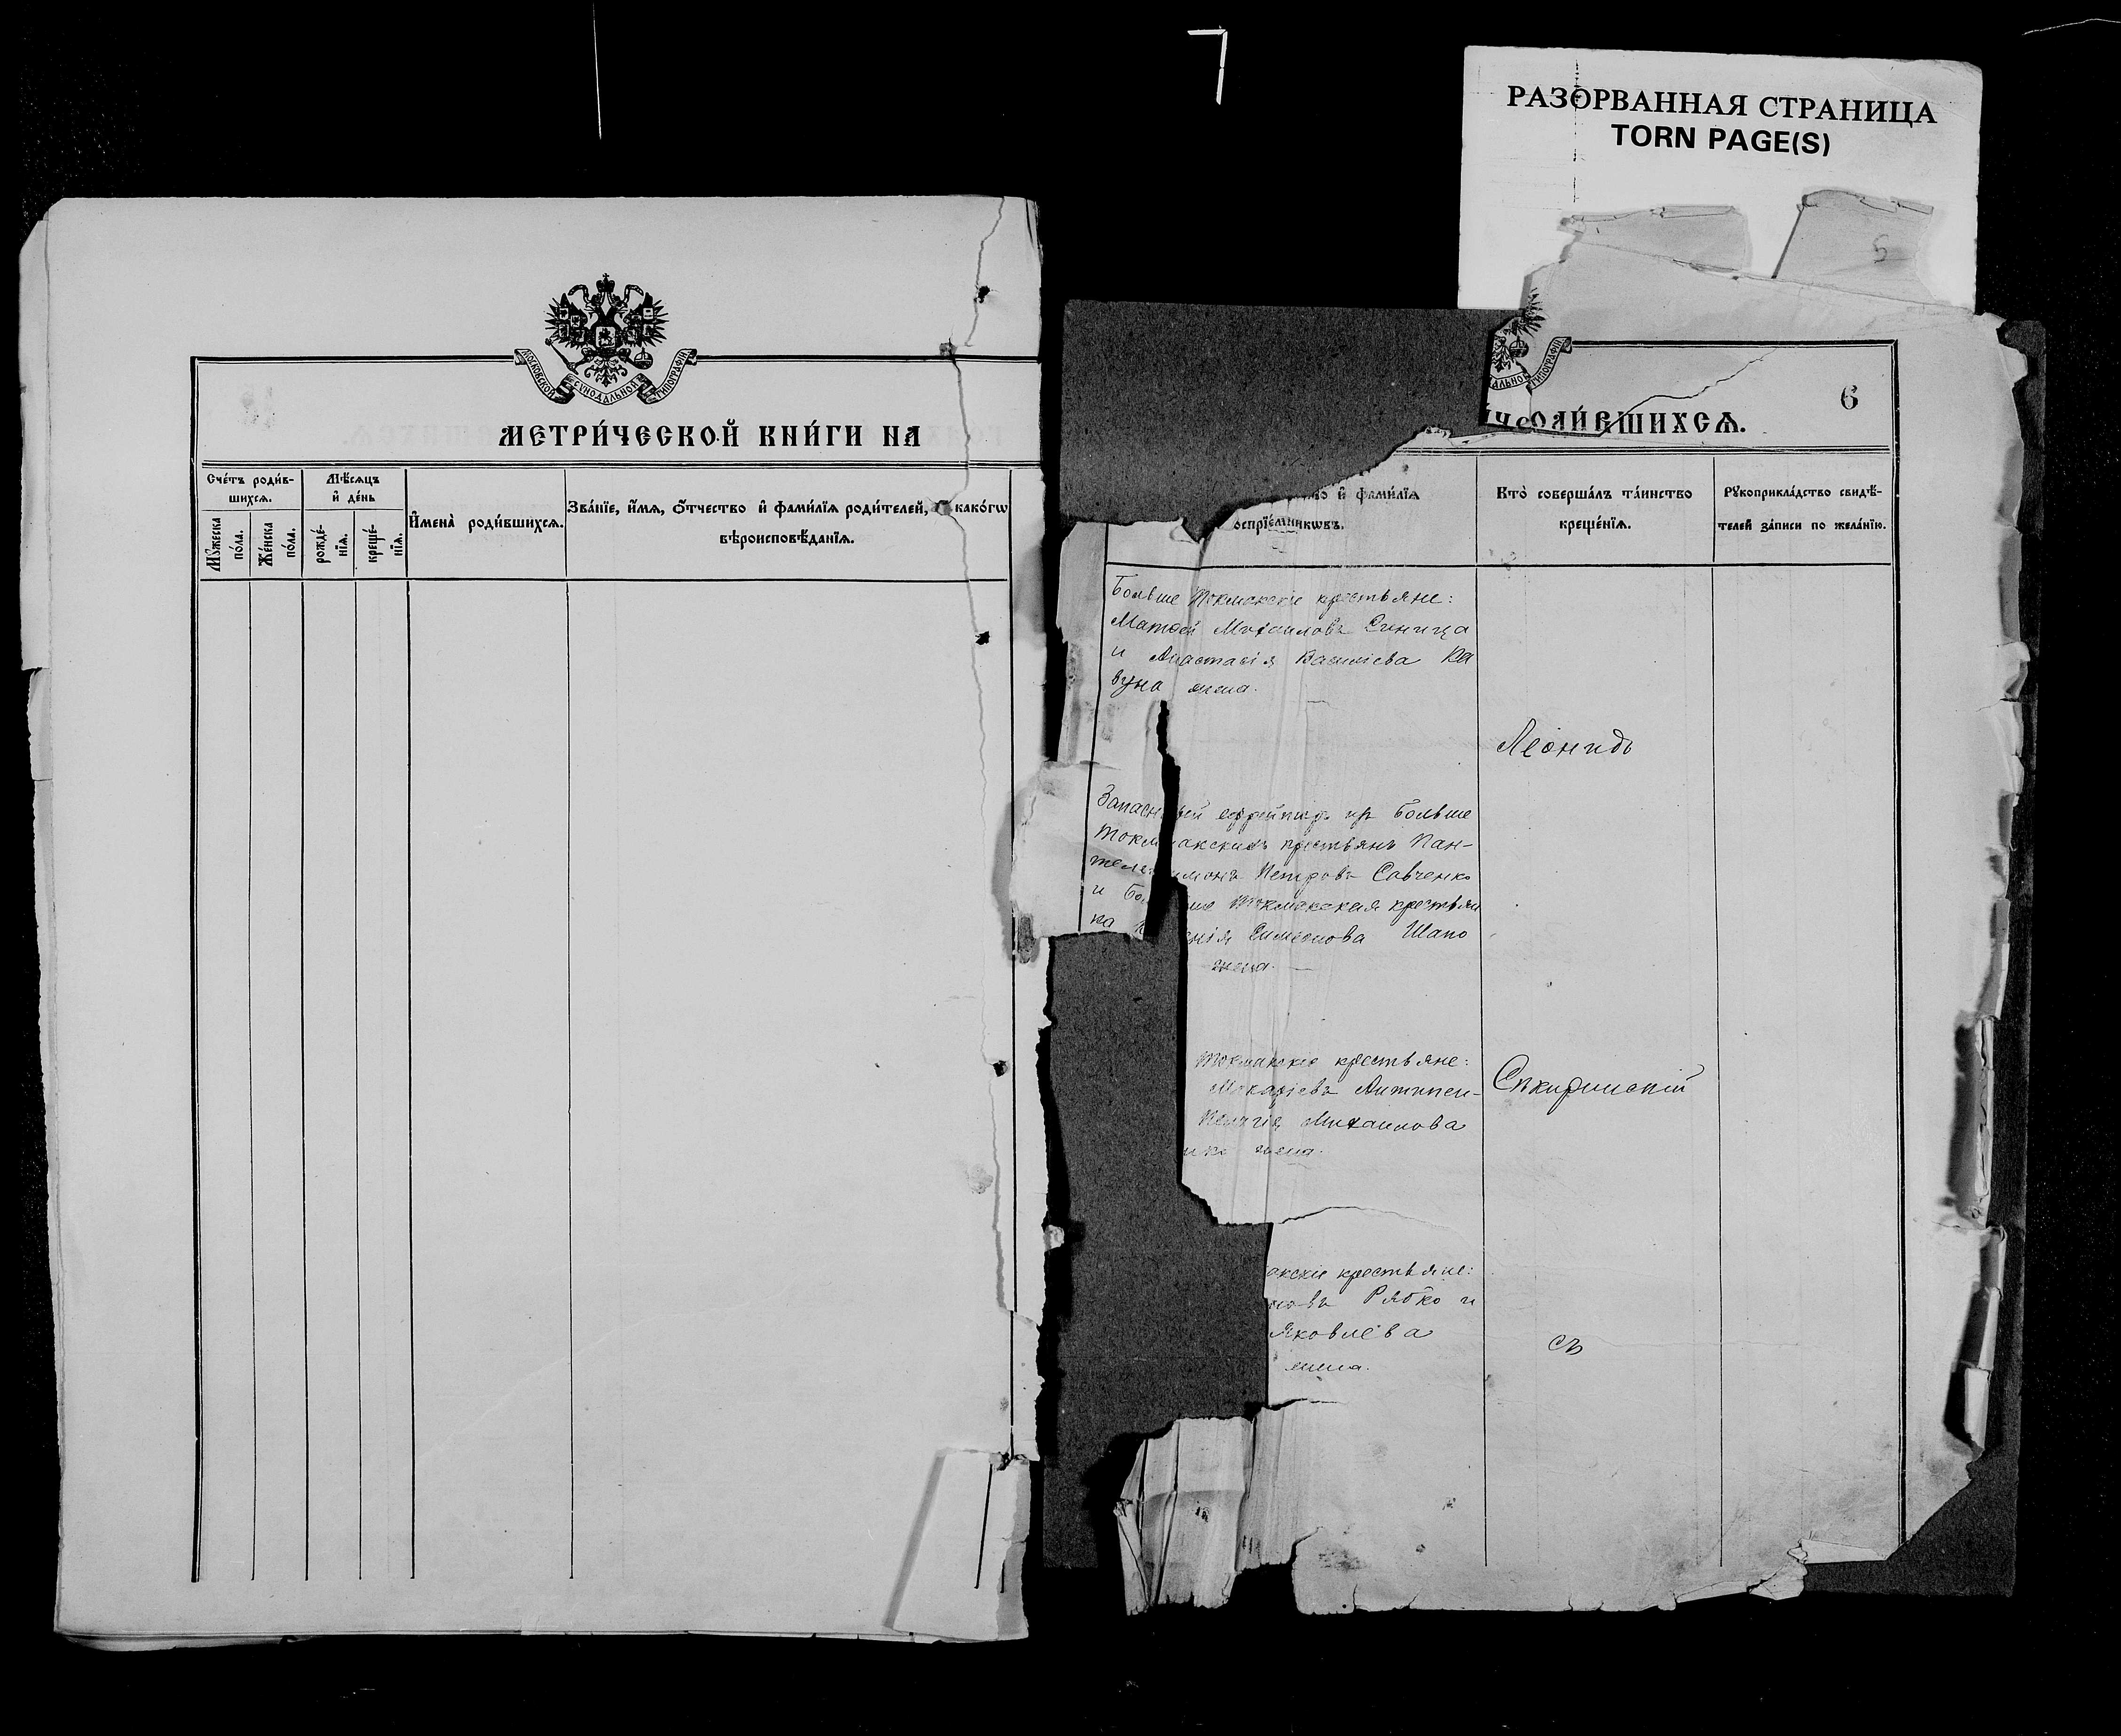 РАЗОРВАННАЯ СТРАНИЦА
TORN PAGE(S)
5
МОСКОВСКОЙ СѴНОДАЛЬНОЙ ТИПОГРАФІИ
МЕТРИ́ЧЕСКОЙ КНИ́ГИ НА
Сче́тъ роди́в-
шихсѧ.
Мꙋ́жеска по́ла.
Же́нска по́ла.
Мѣ́сѧцъ
и҆ де́нь
рожде́-
нїѧ.
креще́-
нїѧ.
И҆мена̀ роди́вшихсѧ.
Зва́нїе, и҆́мѧ, ѻ҆́тчество и҆ фами́лїѧ роди́телей, како́гѡ
вѣроисповѣ́данїѧ.
АЛЬНОЙ ТИПОГРАФІИ
6
ШИХСѦ.
во и҆ фами́лїѧ
оспрїе́мникѡвъ.
Кто̀ соверша́лъ та́инство
креще́нїѧ.
Рꙋкоприкла́дство свидѣ́-
телей за́писи по жела́нїю.
Больше Токмакскіе крестьяне:
Матѳей Михаиловъ Синица
и Анастасія Василіева Ка
вуна жена.
Леонидъ
Запасный ефрейторъ изъ Больше
Токмакскихъ крестьянъ Пан-
телеимонъ Петровъ Савченко
и Больше Токмакская крестьян
ка
нія Симеонова Шапо
жена.
Токмакскіе крестьяне:
Макаріевъ Литвинен-
Пелагія Михаилова
нко жена.
Сѣкиринскій
акскіе крестьяне:
новъ Рябко и
Яковлева
жена.
съ